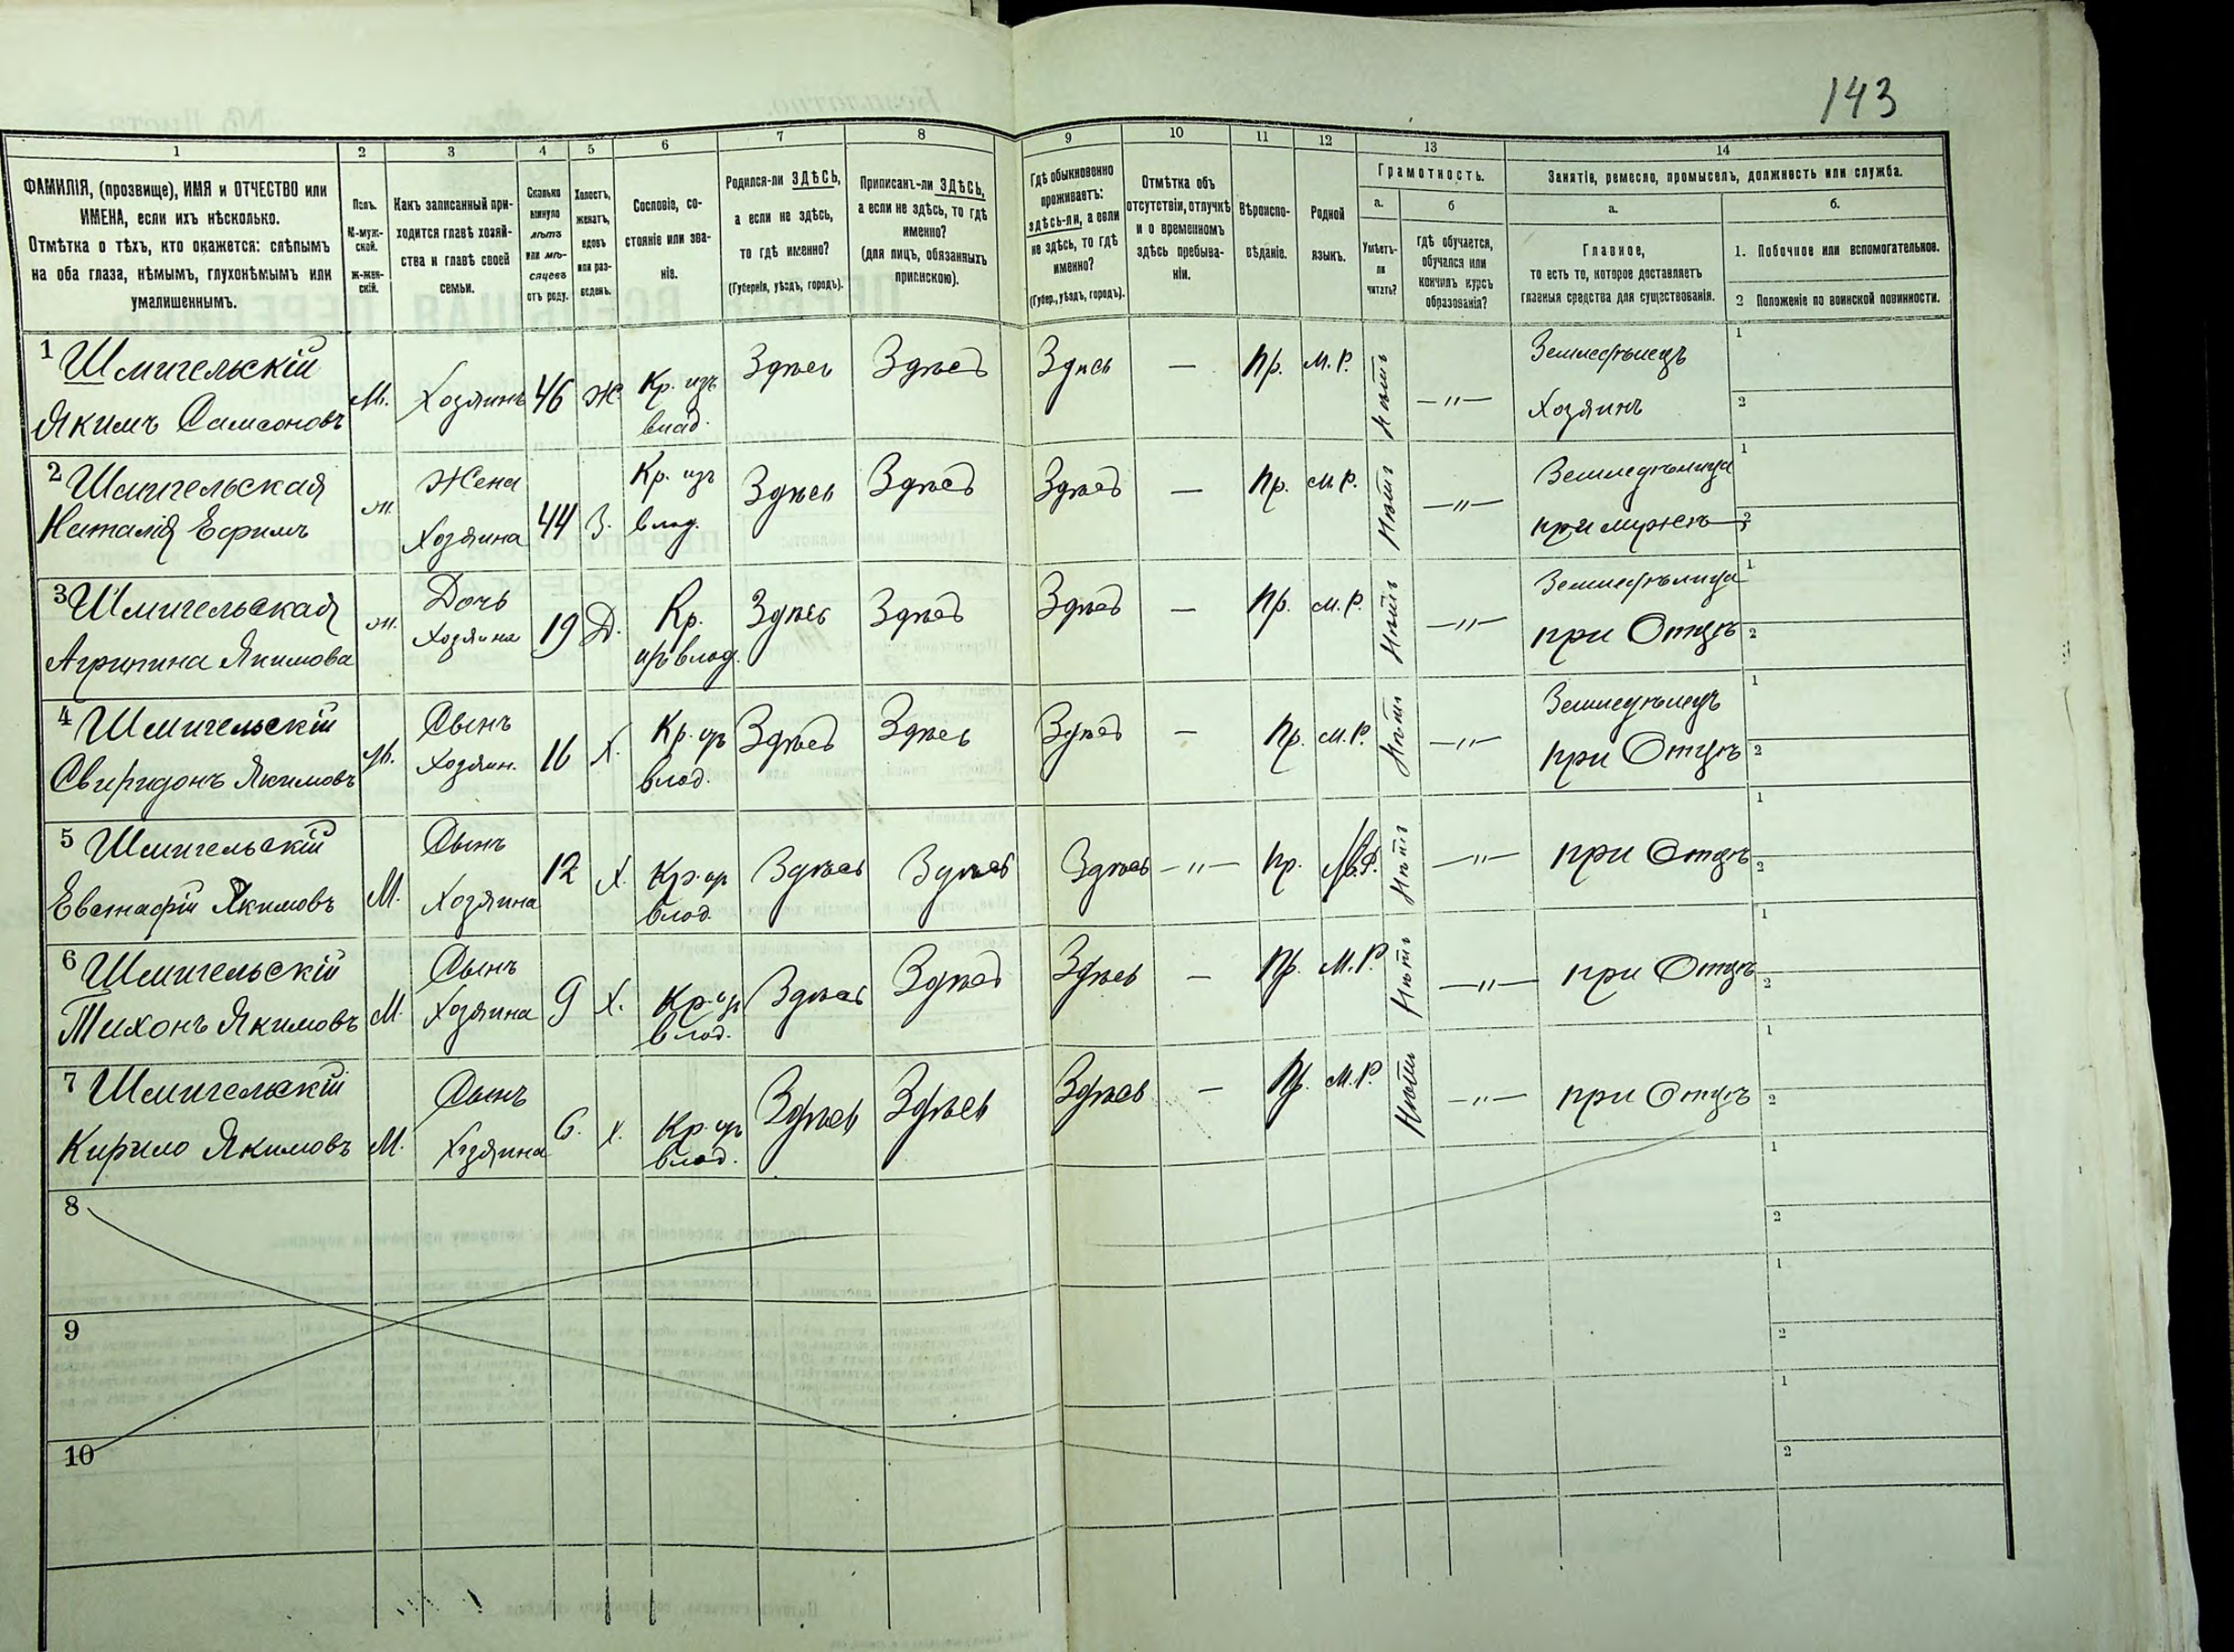 143
1 2 3 4 5 6 7 8 9 10 11 12 13 14
ФАМИЛІЯ, (прозвище), ИМЯ и ОТЧЕСТВО или
ИМЕНА, если ихъ нѣсколько.
Отмѣтка о тѣхъ, кто окажется: слѣпымъ
на оба глаза, нѣмымъ, глухонѣмымъ или
умалишеннымъ.
Полъ.
М-муж-
ской.
Ж-жен-
скій.
Какъ записанный при-
ходится главѣ хозяй-
ства и главѣ своей
семьи.
Сколько
минуло
лѣтъ
или мѣ-
сяцевъ
отъ роду.
Холостъ,
женатъ,
вдовъ
или раз-
веденъ.
Сословіе, со-
стояніе или зва-
ніе.
Родился-ли ЗДѢСЬ,
а если не здѣсь,
то гдѣ именно?
(Губернія, уѣздъ, городъ).
Приписанъ-ли ЗДѢСЬ,
а если не здѣсь, то гдѣ
именно?
(для лицъ, обязанныхъ
припискою).
Гдѣ обыкновенно
проживаетъ:
здѣсь-ли, а если
не здѣсь, то гдѣ
именно?
(Губер., уѣздъ, городъ).
Отмѣтка объ
отсутствіи, отлучкѣ
и о временномъ
здѣсь пребыва-
ніи.
Вѣроиспо-
вѣданіе.
Родной
языкъ.
Грамотность.
а.
Умѣетъ-
ли
читать?
б
Гдѣ обучается,
обучался или
кончилъ курсъ
образованія?
Занятіе, ремесло, промыселъ, должность или служба.
а.
Главное,
то есть то, которое доставляетъ
главныя средства для существованія.
б.
1. Побочное или вспомогательное.
2 Положеніе по воинской повинности.
1 Шмигельскій
Якимъ Самсоновъ
М. Хозяинъ 46 Ж Кр. изъ
влад.
Здѣсь Здѣсь Здѣсь — Пр. М.Р. Нѣтъ —"— Земледѣлецъ
Хозяинъ
1
2
2 Шмигельская
Наталія Ефимъ
Ж. Жена
Хозяина
44 З. Кр. изъ
влад.
Здѣсь Здѣсь Здѣсь — Пр. М.Р. Нѣтъ —"— Земледѣлица
при мужѣ
1
2
3 Шмигельская
Агрипина Якимова
Ж. Дочь
Хозяина
19 Д. Кр.
изъ влад.
Здѣсь Здѣсь Здѣсь — Пр. М.Р. Нѣтъ —"— Земледѣлица
при Отцѣ
1
2
4 Шмигельскій
Свиридонъ Якимовъ
М. Сынъ
Хозяин.
16 Х. Кр. изъ
влад.
Здѣсь Здѣсь Здѣсь — Пр. М.Р. Нѣтъ —"— Земледѣлецъ
при Отцѣ
1
2
5 Шмигельскій
Евстафій Якимовъ
М. Сынъ
Хозяина
12 Х. Кр. изъ
влад.
Здѣсь Здѣсь Здѣсь —"— Пр. М.Р. Нѣтъ —"— при Отцѣ
1
2
6 Шмигельскій
Тихонъ Якимовъ
М. Сынъ
Хозяина
9 Х. Кр. изъ
влад.
Здѣсь Здѣсь Здѣсь — Пр. М.Р. Нѣтъ —"— при Отцѣ
1
2
7 Шмигельскій
Кирило Якимовъ
М. Сынъ
Хозяина
6. Х. Кр. изъ
влад.
Здѣсь Здѣсь Здѣсь — Пр. М.Р. Нѣтъ —"— при Отцѣ
1
2
8
1
2
9
1
2
10
1
2